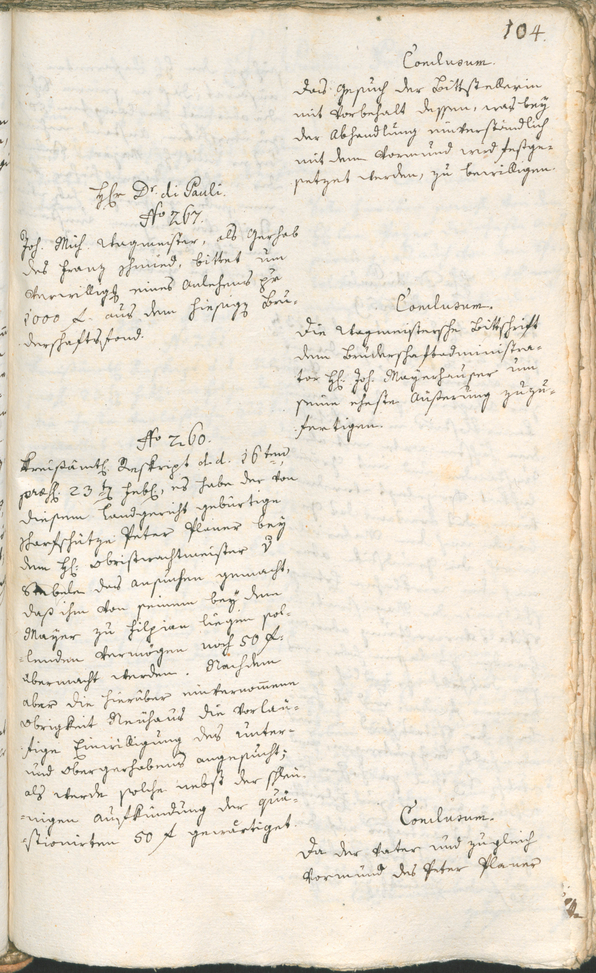 104.
Conclusum.
Das Gesuch der Bittstellerin
mit Vorbehalt dessen, was bey
der Abhandlung einverständlich
mit dem Vormund wird festge-
setzet werden, zu bewilligen.
H. Dr. di Pauli.
No 267.
Joh. Mich. Wagmeister, als Gerhab
des Franz Schmied, bittet um
Verwilligung eines Anlehens per
1000 f. aus dem hiesigen Bru-
derschaftsfond.
Conclusum.
Die Wagmeistersche Bittschrift
dem Bruderschaftsadministra-
tor H. Joh. Mayrhauser um
seine eheste Äußerung zuzu-
fertigen.
No 260.
Kreisämtl. Reskript d. d. 16ten,
praes. 23 Feb., es habe der von
diesem Landgericht gebürtige
Scharfschütze Peter Planer bey
dem H. Obristwachtmeister v
das Ansuchen gemacht,
daß ihm von seinem bey dem
Mayer zu liegen sol-
lenden Vermögen noch 50 f.
übermacht werden. Nachdem
aber die hierüber einvernommene
Obrigkeit Neuhaus die vorläu-
fige Einwilligung des Unter-
und Obergerhabens angesucht;
als werde solche nebst der schleu-
nigen Aufkündung der quae-
stionirten 50 f gewärtiget.
Conclusum.
Da der Vater und zugleich
Vormund des Peter Planer